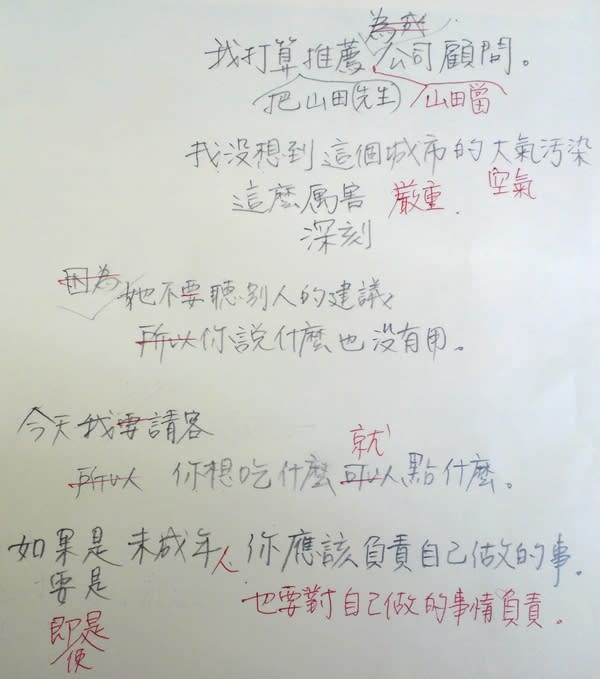 為成
我打算推薦公司顧問。
把山田(先生) 山田當
我沒想到這個城市的大氣污染
這麼厲害 嚴重. 空氣
深刻
因為她不要聽別人的建議,
所以你說什麼也沒有用。
今天我要請客 就
所以 你想吃什麼可以點什麼。
如果是 未成年人 你應該負責自己做的事.
要是 也要對自己做的事情負責。
即是
使